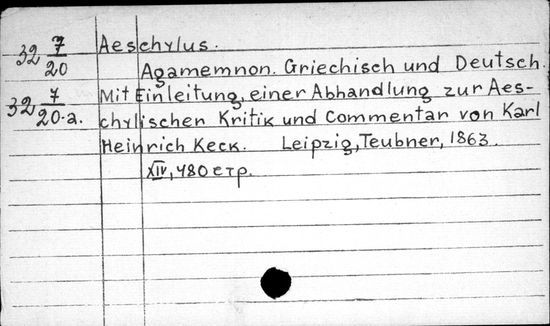 32 7/20 Aeschylus.
Agamemnon. Griechisch und Deutsch.
32 7/20-a. Mit Einleitung, einer Abhandlung zur Aes-
chylischen Kritik und Commentar von Karl
Heinrich Keck. Leipzig, Teubner, 1863.
XIV, 480 стр.